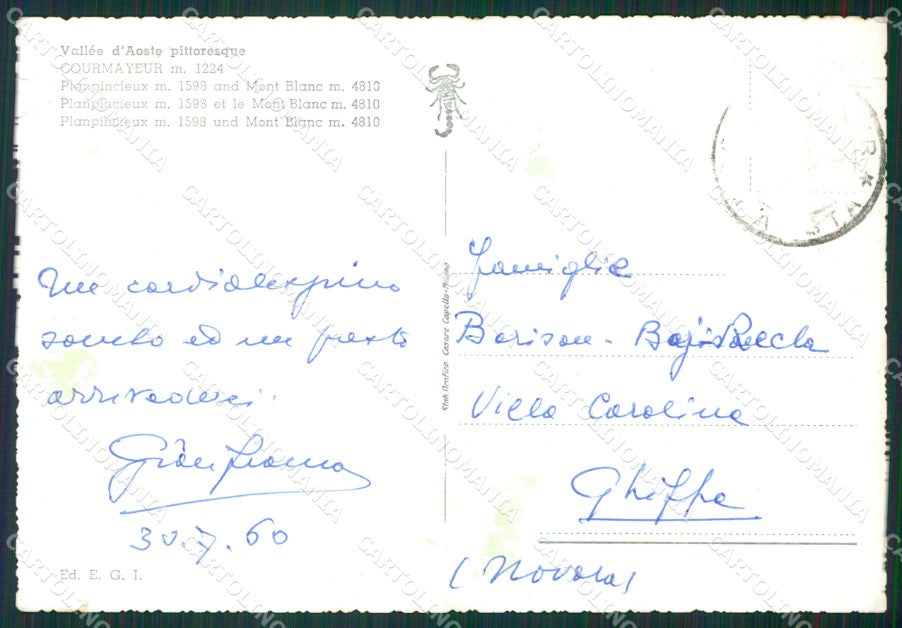 Vallée d'Aoste pittoresque
COURMAYEUR m. 1224
Planpincieux m. 1598 and Mont Blanc m. 4810
Planpincieux m. 1598 et le Mont Blanc m. 4810
Planpincieux m. 1598 und Mont Blanc m. 4810
Un cordialissimo
saluto ed un presto
arrivederci.
Gianfranco
30.7.60
Ed. E. G. I.
Stab. Grafico Cesare Capello - Milano
Famiglia
Borison -
Villa Carolina
Ghiffa
(Novara)
CARTOLINOMANIA